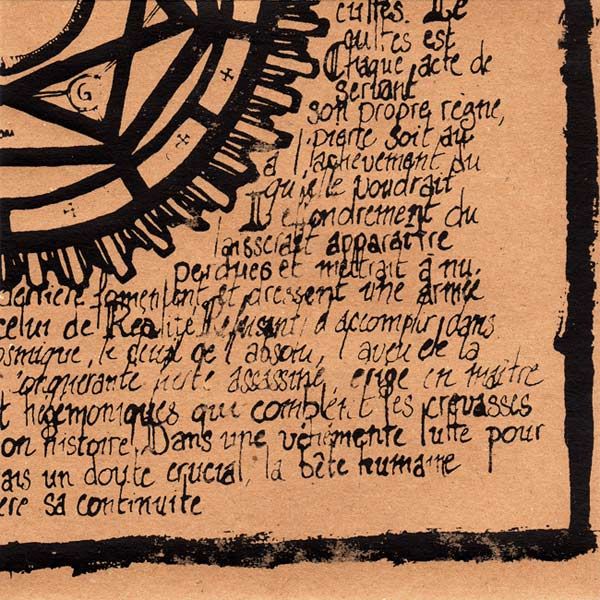 cultes. Le
cultes est
Chaque acte de
servant
son propre règne,
pierre soit au
à l'achèvement du
qu'elle voudrait
L'effondrement du
laisserait apparaître
perdues et mettrait à nu.
derrière fomentent et dressent une armée
celui de Réalité. Refusant d'accomplir dans
osmique, le deuil de l'absolu, l'aveu de la
conquérante reste assassine, erige en maître
t hégémoniques qui comblent les crevasses
on histoire. Dans une véhémente lutte pour
ais un doute crucial, la bête humaine
ère sa continuité
G